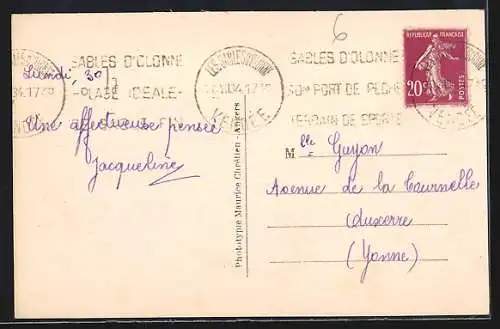 6
RÉPUBLIQUE FRANÇAISE
20c
POSTES
LES SABLES D'OLONNE
VENDÉE
SABLES D'OLONNE
PLAGE IDEALE
SABLES D'OLONNE
PORT DE PECHE
TERRAIN DE SPORTS
VENDÉE
Lundi, 30/7
Une affectueuse pensée
Jacqueline
Phototypie Maurice Chrétien - Angers
Mlle Guyon
Avenue de la Tournelle
Auxerre
(Yonne)